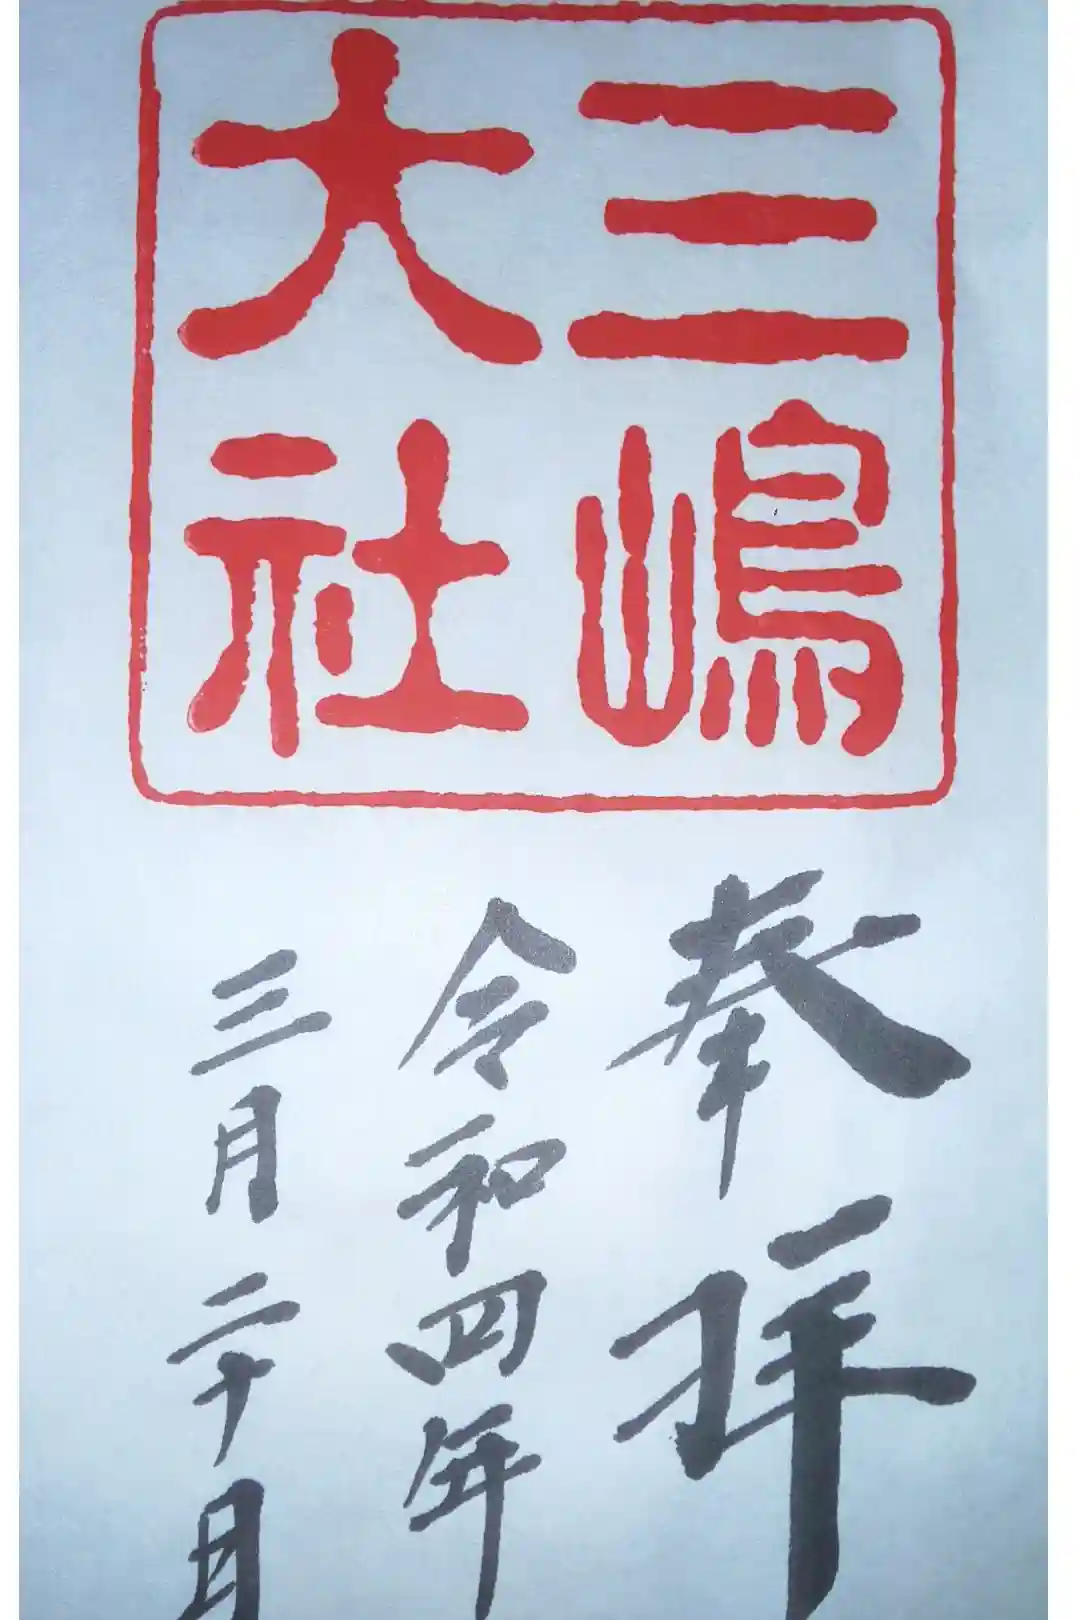 三嶋
大社
奉拝
令和四年
三月二十日